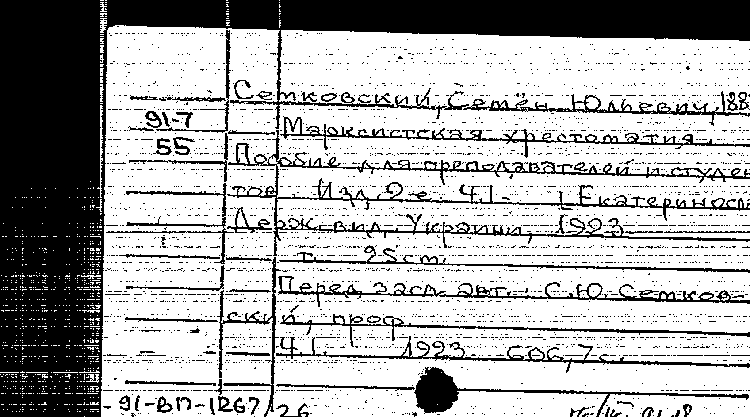 Сетковский, Семён Юльевич, 188
91-7
Марксистская хрестоматия.
55
Пособие для преподавателей и студен
тов. Изд. 2-е. Ч.I- [Екатериносл
Держ. вид. Украини, 1923
т. 25 cm.
Перед. загл. авт.: С.Ю. Сетков-
ский, проф.
Ч.I. 1923 606,7 с.
91-ВП-1267/26